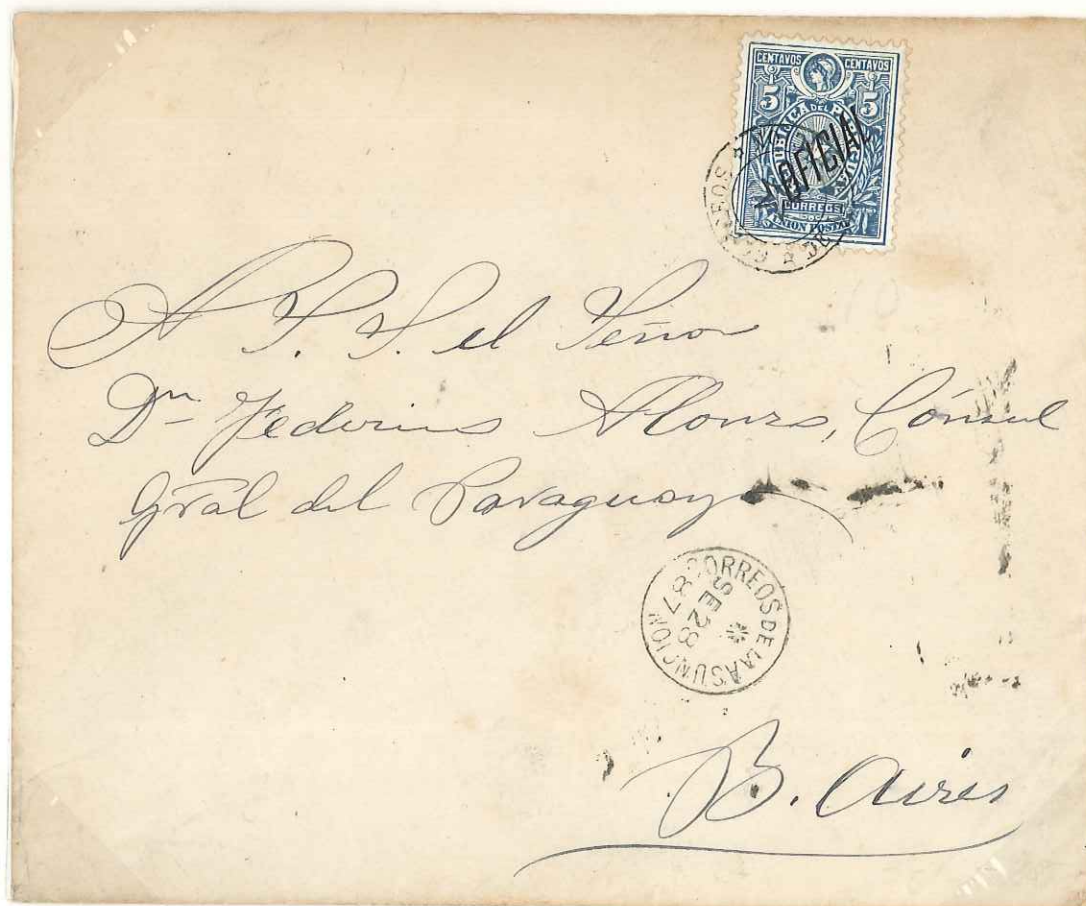 CENTAVOS CENTAVOS
5 5
OFICIAL
CORREOS
UNION POSTAL
A S. S. el Señor
Dn Federico Alonso, Cónsul
Gral del Paraguay
CORREOS DE LA ASUNCION
SE 28
87
B. Aires